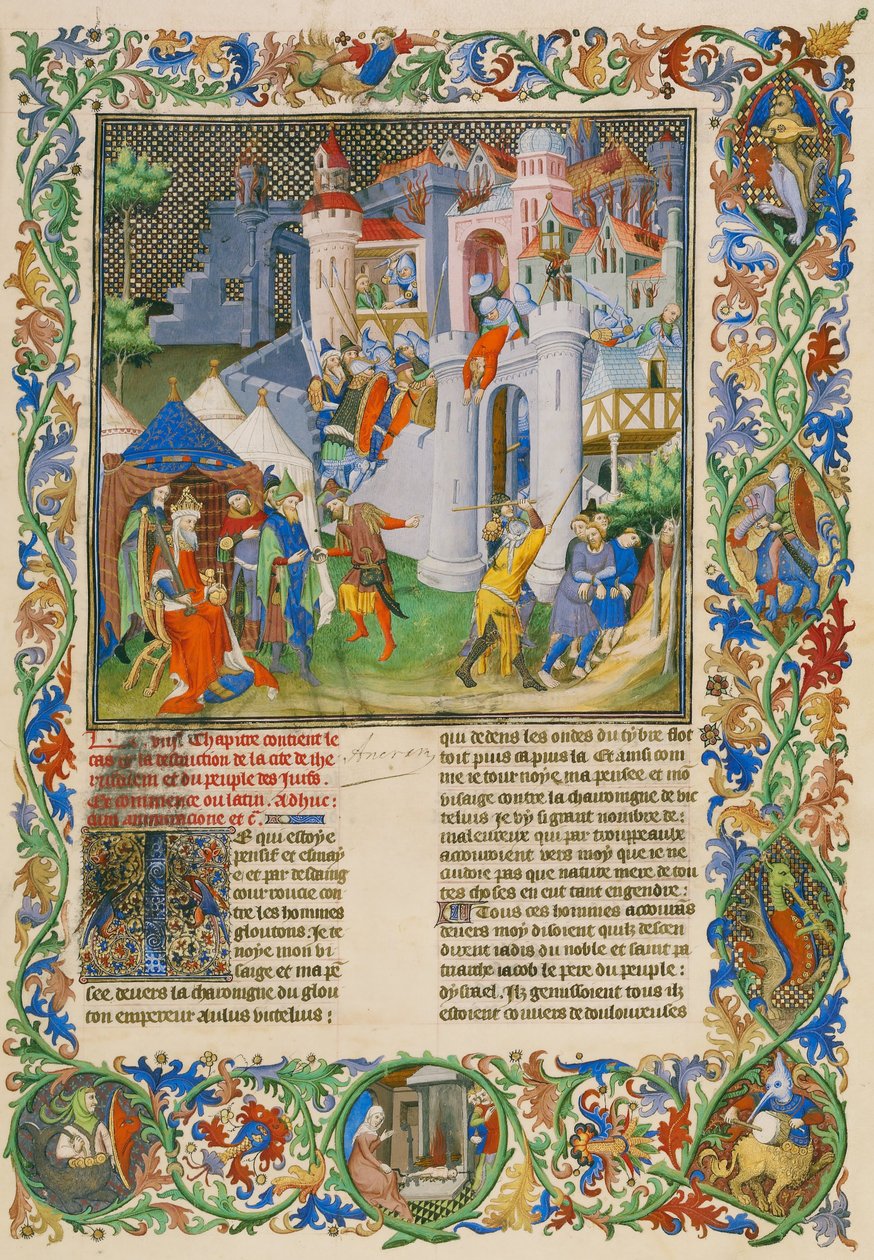 Le .viii. Chapitre contient le
cas de la destruction de la cite de ihe
rusalem et du peuple des Juifs.
Et commence ou latin. Adhuc:
cum et c̃.
E qui estoye
pensif et esmay
e et par desdaing
courroucie con
tre les hommes
gloutons. Je te
noye mon vi
saige et ma pẽ
see devers la charoingne du glou
ton empereur Aulus victelius:
qui dedens les ondes du tybre flot
toit puis ca puis la. Et ainsi com
me ie tournoye. ma pensee et mõ
visaige contre la charoingne de vic
telius ie vy si grant nombre de:
maleureux qui par trouppeaulx
accouroient vers moy que ie ne
cuidoie pas que nature mere de tou
tes choses en eut tant engendre:
Tous ces hommes accourãs
devers moy disoient quilz descen
dirent iadis du noble et saint pa
triarche iacob le pere du peuple:
dysrael. Ilz gemissoient tous ilz
estoient couvers de douloureuses